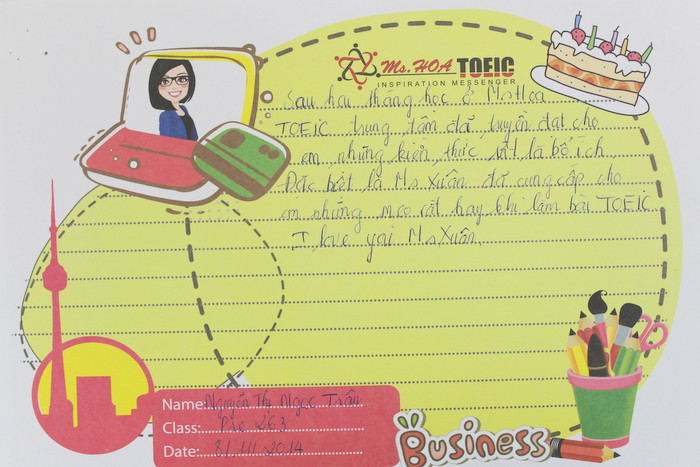 Ms.HOA TOEIC
INSPIRATION MESSENGER
Sau hai tháng học ở MsHoa
TOEIC trung tâm đã truyền đạt cho
em những kiến thức rất là bổ ích
Đặc biệt là Ms Xuân đã cung cấp cho
em những mẹo rất hay khi làm bài TOEIC.
I love you Ms Xuân.
Name: Nguyễn Thị Ngọc Trân
Class: Pre 263
Date: 2014
Business